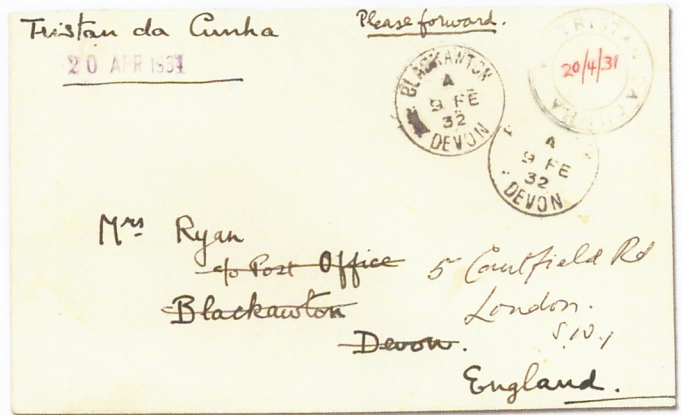 Tristan da Cunha
Please forward.
20 APR 1931
BLACKAWTON
A
9 FE
32
DEVON
TRISTAN DA CUNHA
20/4/31
A
9 FE
32
DEVON
Mrs Ryan
c/o Post Office
Blackawton
Devon.
5 Caultfield Rd
London.
England.